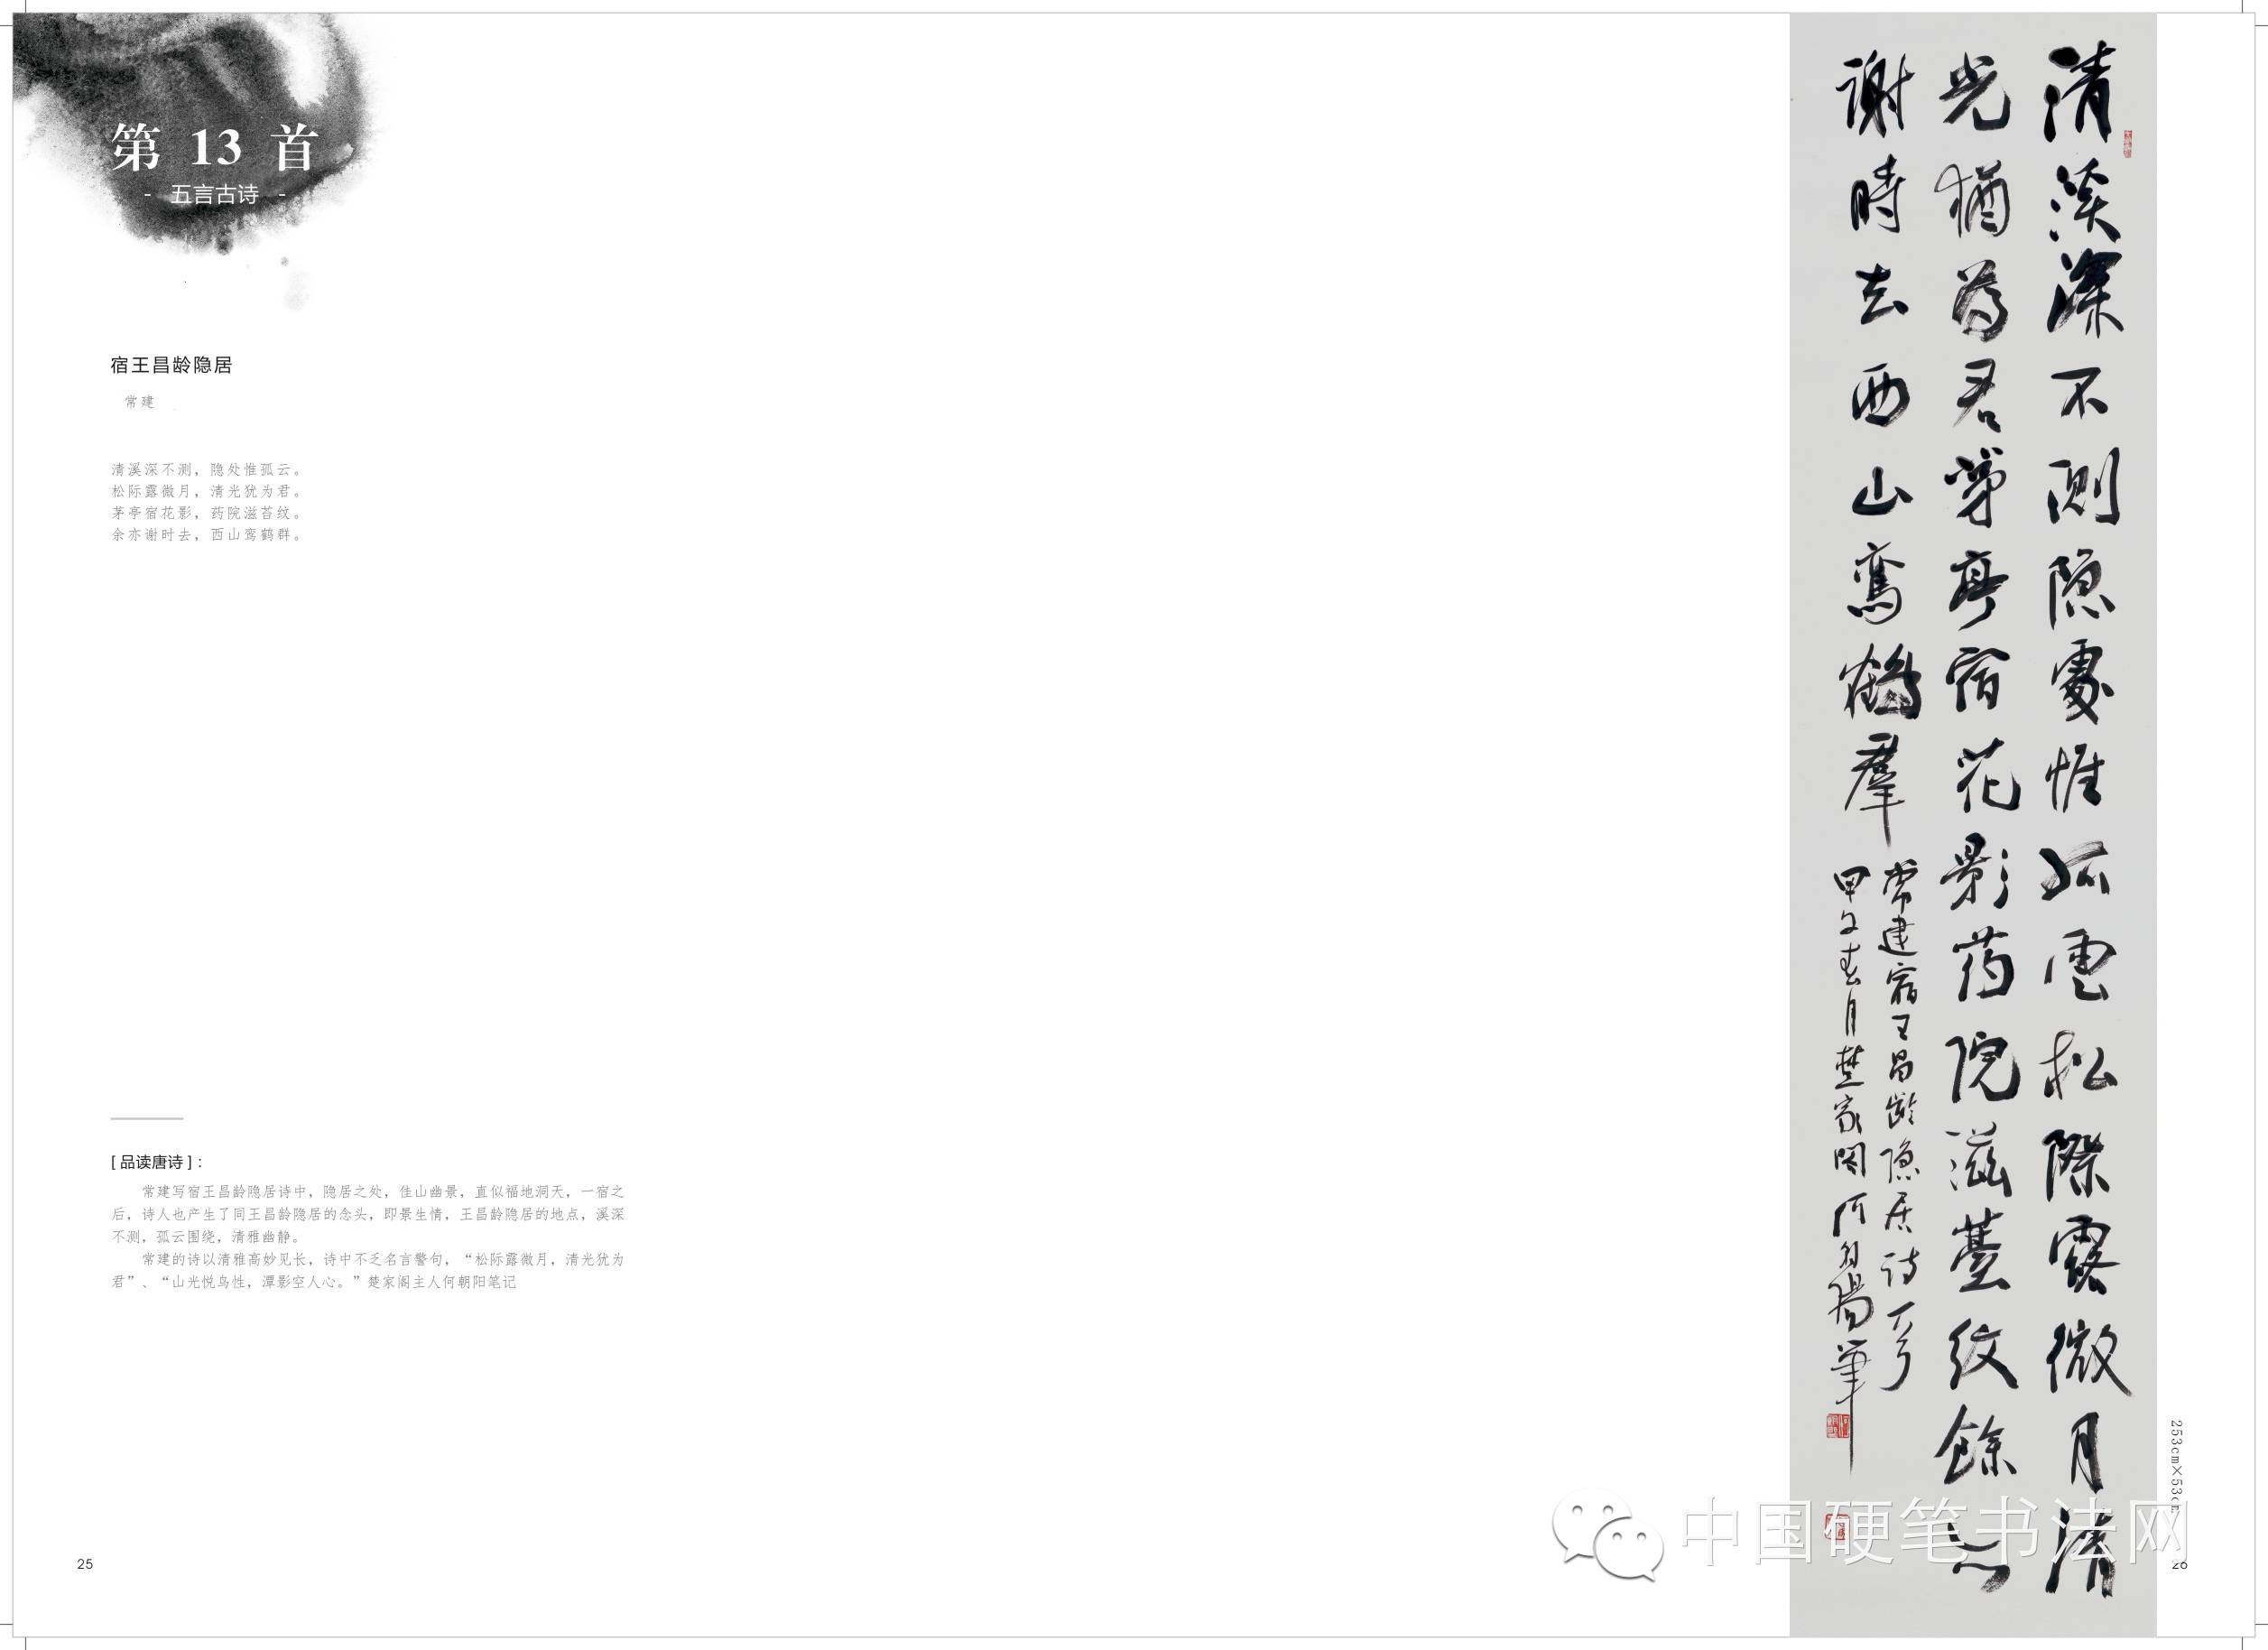 第 13 首
- 五言古诗 -
宿王昌龄隐居
常建
清溪深不测，隐处惟孤云。
松际露微月，清光犹为君。
茅亭宿花影，药院滋苔纹。
余亦谢时去，西山鸾鹤群。
[ 品读唐诗 ]：
常建写宿王昌龄隐居诗中，隐居之处，佳山幽景，直似福地洞天，一宿之
后，诗人也产生了同王昌龄隐居的念头，即景生情，王昌龄隐居的地点，溪深
不测，孤云围绕，清雅幽静。
常建的诗以清雅高妙见长，诗中不乏名言警句，“松际露微月，清光犹为
君”、“山光悦鸟性，潭影空人心。”楚家阁主人何朝阳笔记
25
清溪深不测隐處惟孤雲松際露微月清
光猶為君茅亭宿花影药院滋薹纹餘亦
謝時去西山鸾鶴羣
常建宿王昌龄隐居诗一首
甲午春月楚家阁何朝陽筆
253cm×53cm
中国硬笔书法网
26